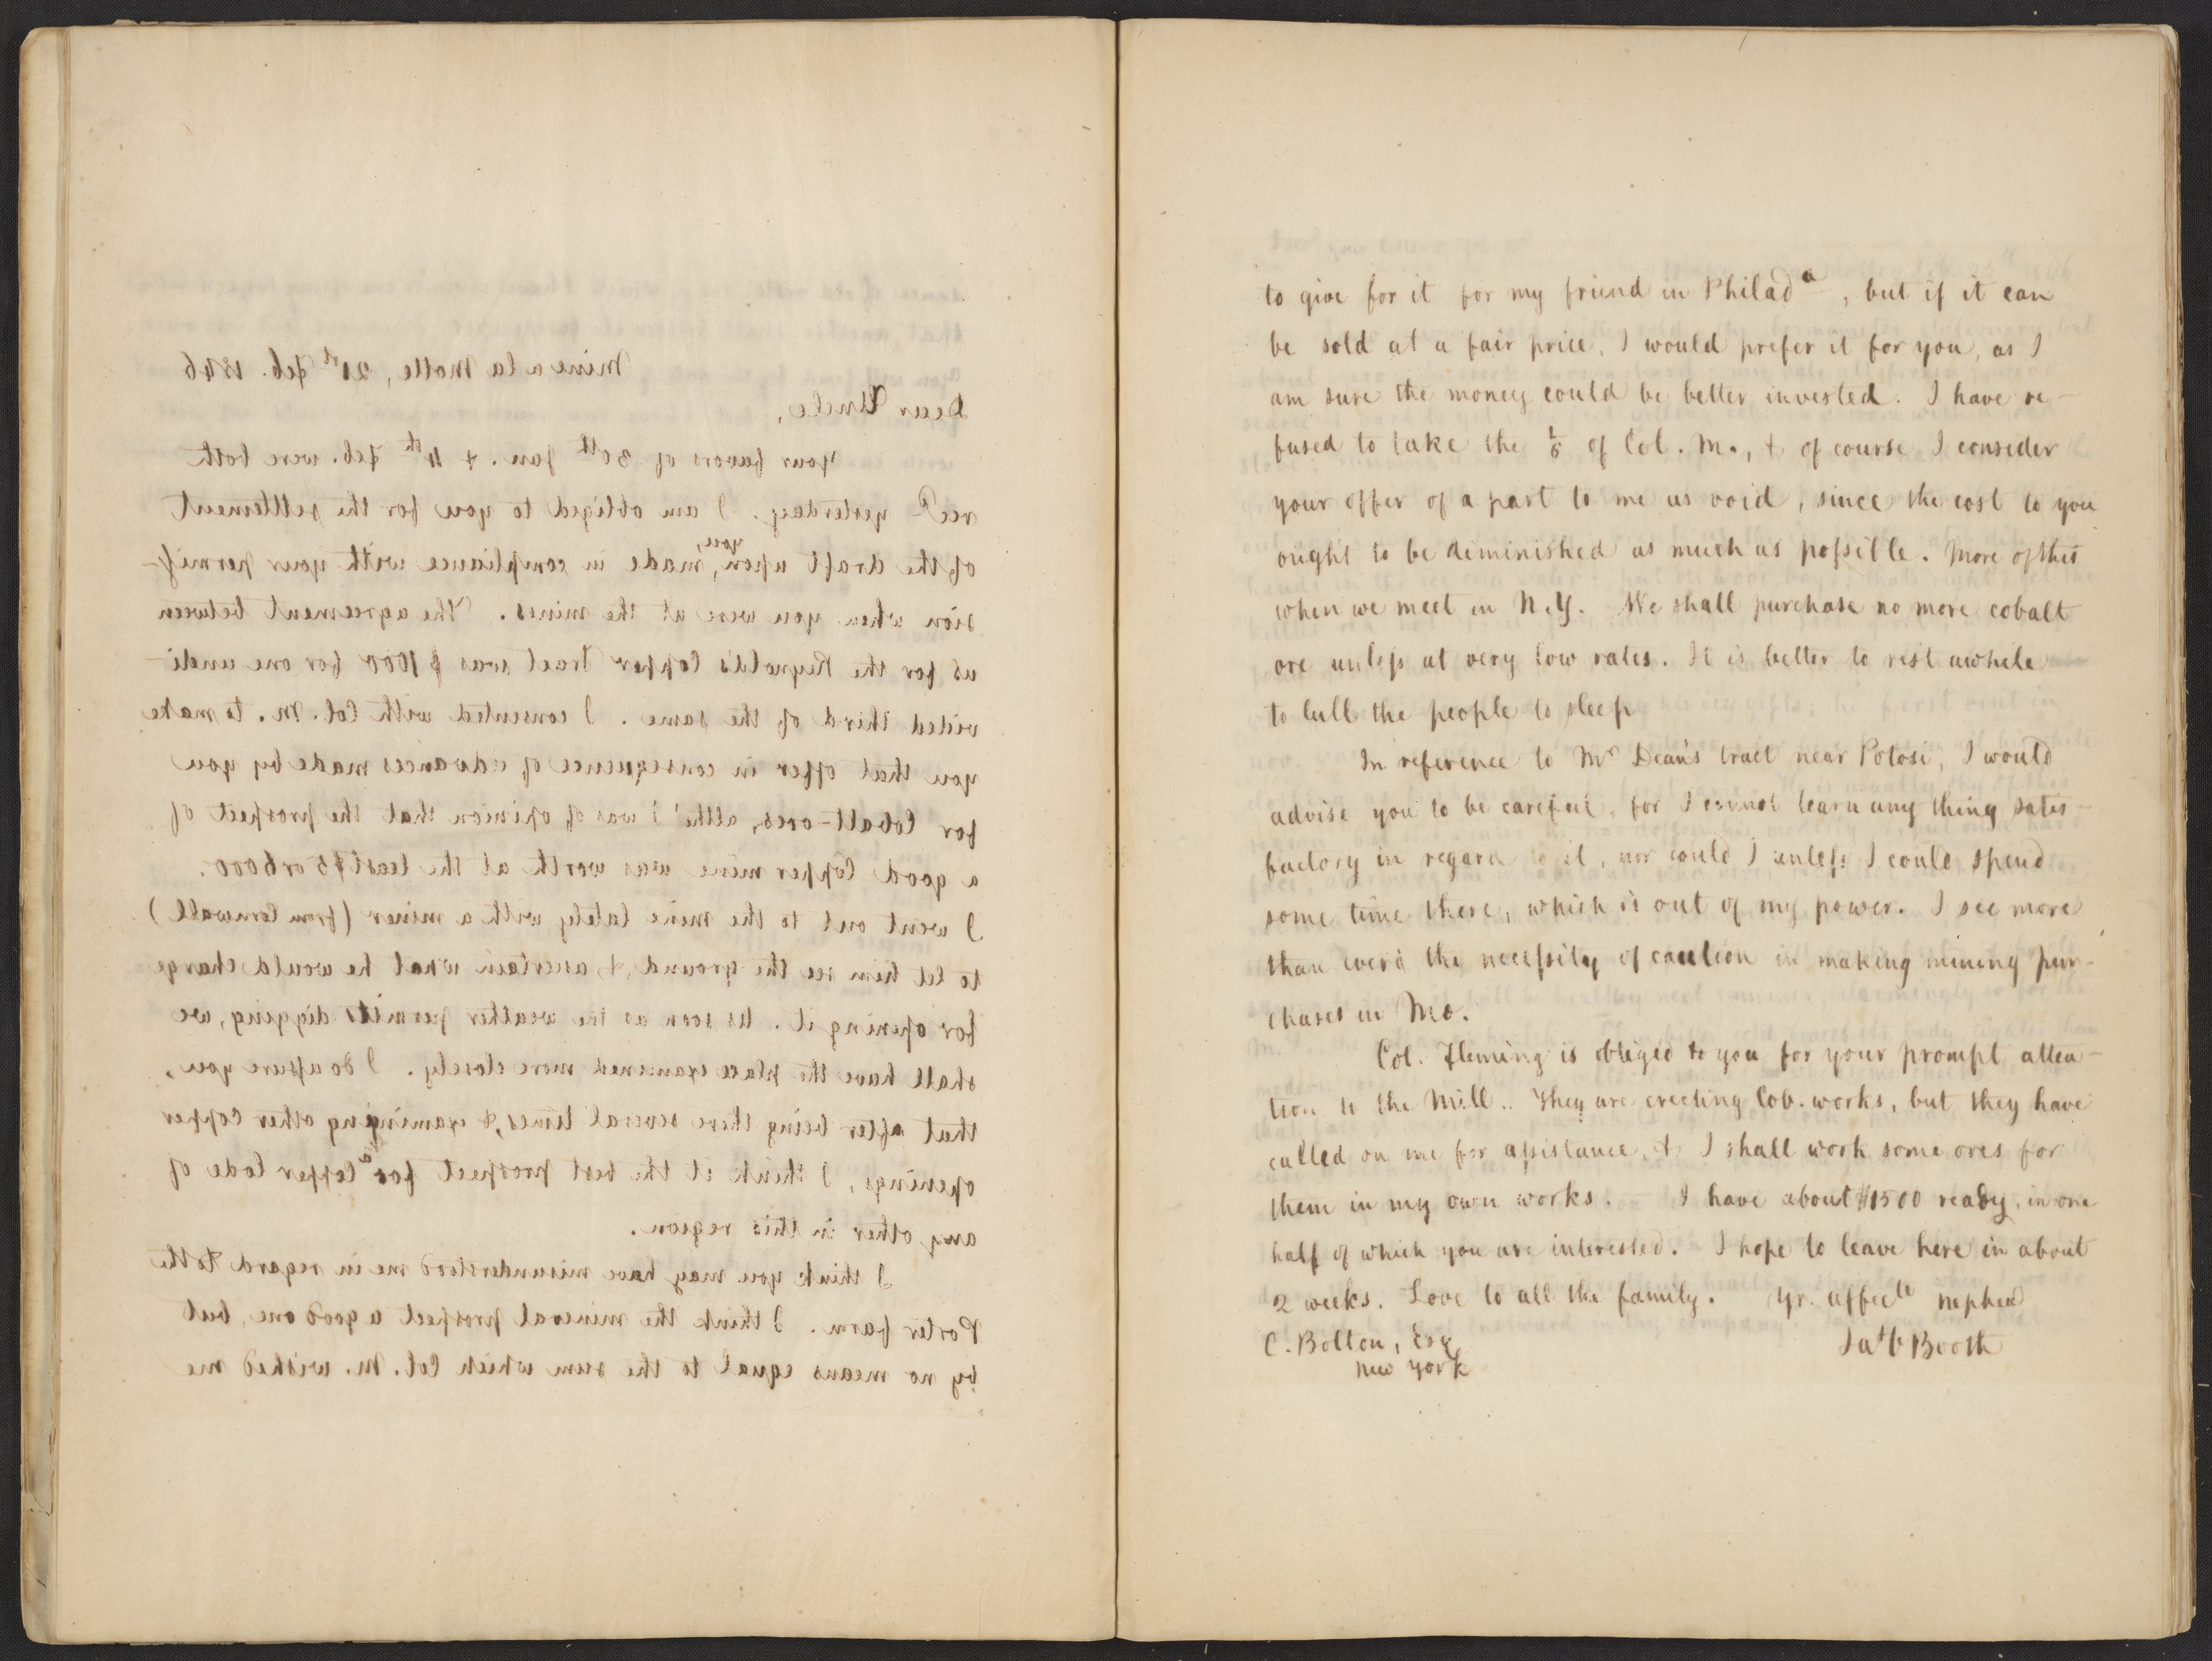 Mine a la Motte, 21st Feb. 1846
Dear Uncle,
Your favors of 30th Jan. & 4th Feb. were both
recd yesterday. I am obliged to you for the settlement
of the draft upon you, made in compliance with your permis-
sion when you were at the mines. The agreement between
us for the Reynolds Copper Tract was $1000 for one undi-
vided third of the same. I consented with Col. M. to make
you that offer in consequence of advances made by you
for Cobalt-ores, altho' I was of opinion that the prospect of
a good Copper mine was worth at the least $5 or 6000.
I went out to the mine lately with a miner (from Cornwall)
to let him see the ground, & ascertain what he would charge
for opening it. As soon as the weather permits digging, we
shall have the place examined more closely. I do assure you,
that after being there several times, & examining other copper
openings, I think it the best prospect for a Copper lode of
any other in this region.
I think you may have misunderstood me in regard to the
Porter farm. I think the mineral prospect a good one, but
by no means equal to the sum which Col. M. wished me
to give for it for my friend in Philada, but if it can
be sold at a fair price, I would prefer it for you, as I
am sure the money could be better invested. I have re-
fused to take the of Col. M., & of course I consider
your offer of a part to me as void, since the cost to you
ought to be diminished as much as possible. More of this
when we meet in N.Y. We shall purchase no more cobalt
ore unless at very low rates. It is better to rest awhile
to lull the people to sleep
In reference to Mr Dean's tract near Potosi, I would
advise you to be careful, for I cannot learn any thing satis-
factory in regard to it, nor could I unless I could spend
some time there, which is out of my power. I see more
than ever the necessity of caution in making mining pur-
chases in Mo.
Col. Fleming is obliged to you for your prompt atten-
tion to the Mill.. They are erecting Cob. works, but they have
called on me for assistance, & I shall work some ores for
them in my own works. I have about $1500 ready, in one
half of which you are interested. I hope to leave here in about
2 weeks. Love to all the family. Yr. affecte nephew
C. Bolton, Esq Booth
New York